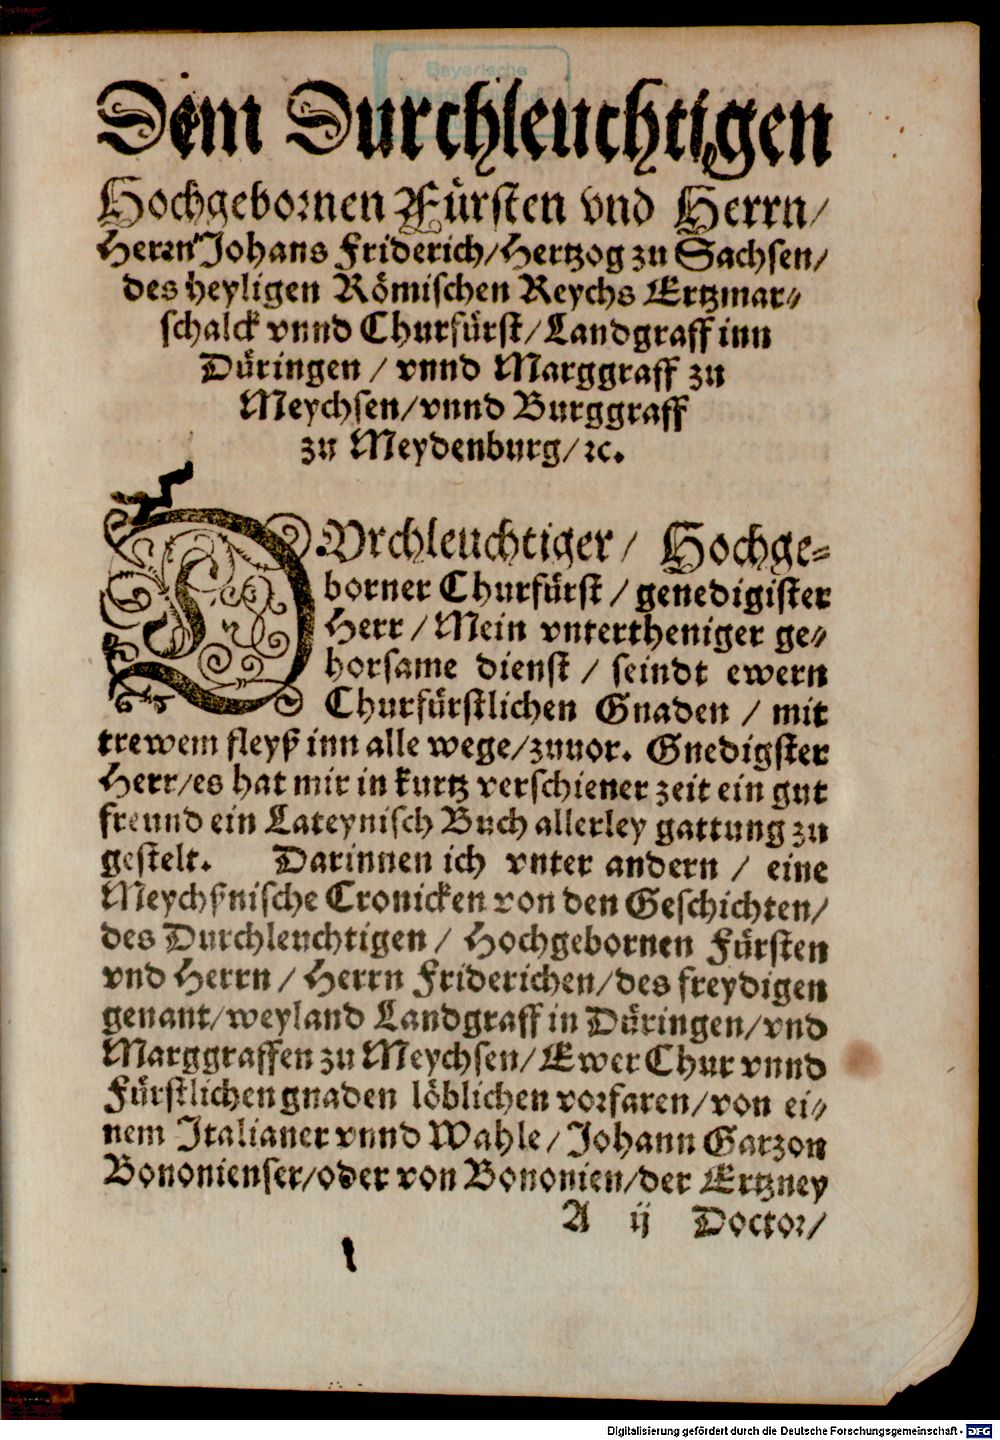 Dem Durchleuchtigen
Hochgebornen Fürsten vnd Herrn/
Herrn Johans Friderich/Hertzog zu Sachsen/
des heyligen Römischen Reychs Ertzmar⸗
schalck vnnd Churfürst/Landgraff inn
Düringen / vnnd Marggraff zu
Meychsen/vnnd Burggraff
zu Meydenburg/ ꝛc.
DVrchleuchtiger / Hochge⸗
borner Churfürst / genedigister
Herr / Mein vntertheniger ge⸗
horsame dienst / seindt ewern
Churfürstlichen Gnaden / mit
trewem fleyß inn alle wege/zuuor. Gnedigster
Herr/es hat mir in kurtz verschiener zeit ein gut
freund ein Lateynisch Buch allerley gattung zu
gestelt. Darinnen ich vnter andern / eine
Meychßnische Cronicken von den Geschichten/
des Durchleuchtigen / Hochgebornen Fürsten
vnd Herrn / Herrn Friderichen/des freydigen
genant/weyland Landgraff in Düringen/vnd
Marggraffen zu Meychsen/Ewer Chur vnnd
Fürstlichen gnaden löblichen vorfaren/von ei⸗
nem Italianer vnnd Wahle/Johann Garzon
Bononienser/oder von Bononien/der Ertzney
A ij Doctor/
Bayerische
Digitalisierung gefördert durch die Deutsche Forschungsgemeinschaft - DFG